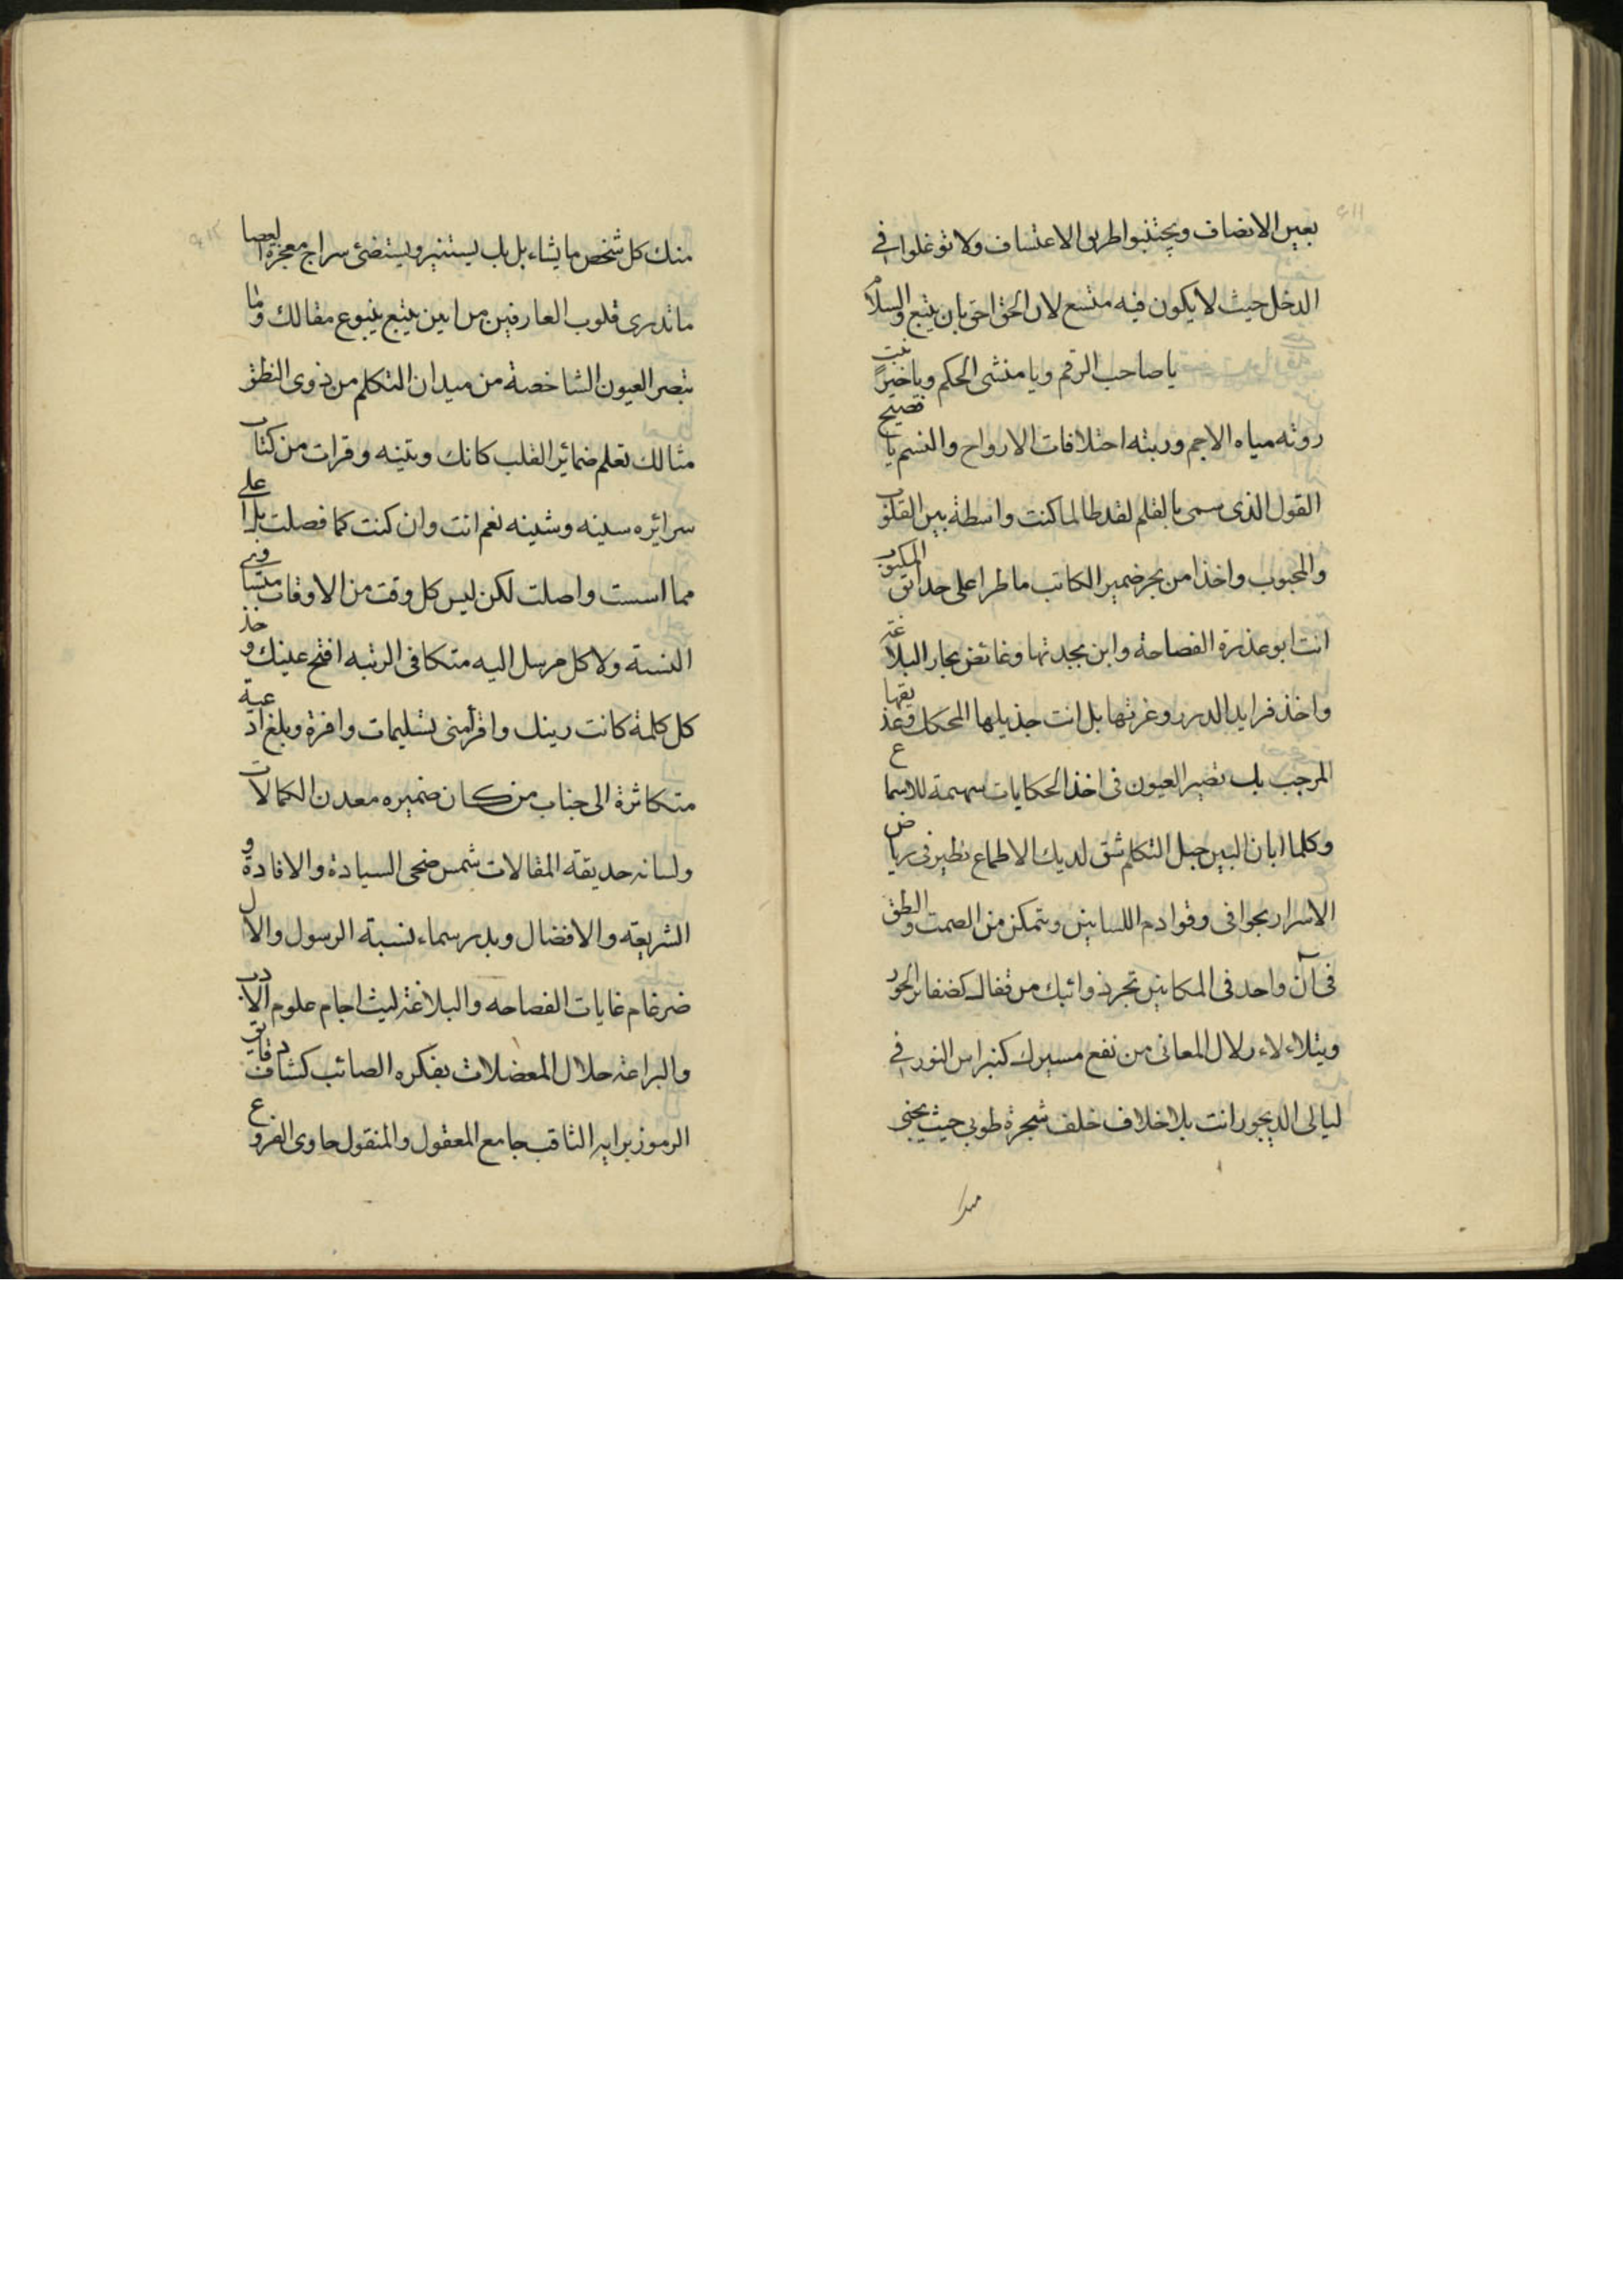 بعين الانصاف ويجتنبوا طريق الاعتساف ولا توغلوا في
الدخل حيث لا يكون فيه متسع لان الحق احق بان يتبع والسلام
يا صاحب الرقم ويا منشى الحكم ويا خير نبت
روته مياه الاجم وربته اختلافات الارواح والنسم يا فصيح
القول الذى سمى بالقلم لقد طالما كنت واسطة بين القلوب
والمحبوب واخذا من بحر ضمير الكاتب ما طرا على حدائق المكتوب
انت ابو عذرة الفصاحة وابن بجدتها وغائص بحار البلاغة
واخذ فرايد الدرر وغرتها بل انت جذيلها المحكك وعذيقها
المرجب بك تصير العيون في اخذ الحكايات سهيمة للاسماع
وكلما ابان البين حبل التكلم شق لديك الاطماع تطير في رياض
الاسرار بخوافى وقوادم اللسانين وتتمكن من الصمت والنطق
في آن واحد في المكانين تجر ذوائبك من قفاك كضفائر الحور
ويتلاءلاء زلال المعانى من نقع مسيرك كنبراس النور في
ليالى الديجور انت بلا خلاف خلف شجرة طوبى حيث يجنى
منك كل شخص ما يشاء بل بك يستنير ويستضئ سراج معجزة العصا
ما تدرى قلوب العارفين من اين ينبع ينبوع مقالك وما
تبصر العيون الشاخصة من ميدان التكلم من ذوى النطق
مثالك تعلم ضمائر القلب كانك وتينه وقرات من كتاب
سرائره سينه وشينه نعم انت وان كنت كما فصلت بل اعلى
مما اسست واصلت لكن ليس كل وقت من الاوقات متساوى
النسبة ولا كل مرسل اليه متكافى الرتبه افتح عينك وخذ
كل كلمة كانت رينك واقرأ منى تسليمات وافرة وبلغ ادعية
متكاثرة الى جناب من كان ضميره معدن الكمالات
ولسانه حديقة المقالات شمس ضحى السيادة والافادة و
الشريعه والافضال وبدر سماء نسبة الرسول والال
ضرغام غايات الفصاحه والبلاغة ليث اجام علوم الادب
والبراعة حلال المعضلات بفكره الصائب كشاف دقايق
الرموز برايه الثاقب جامع المعقول والمنقول حاوى الفروع